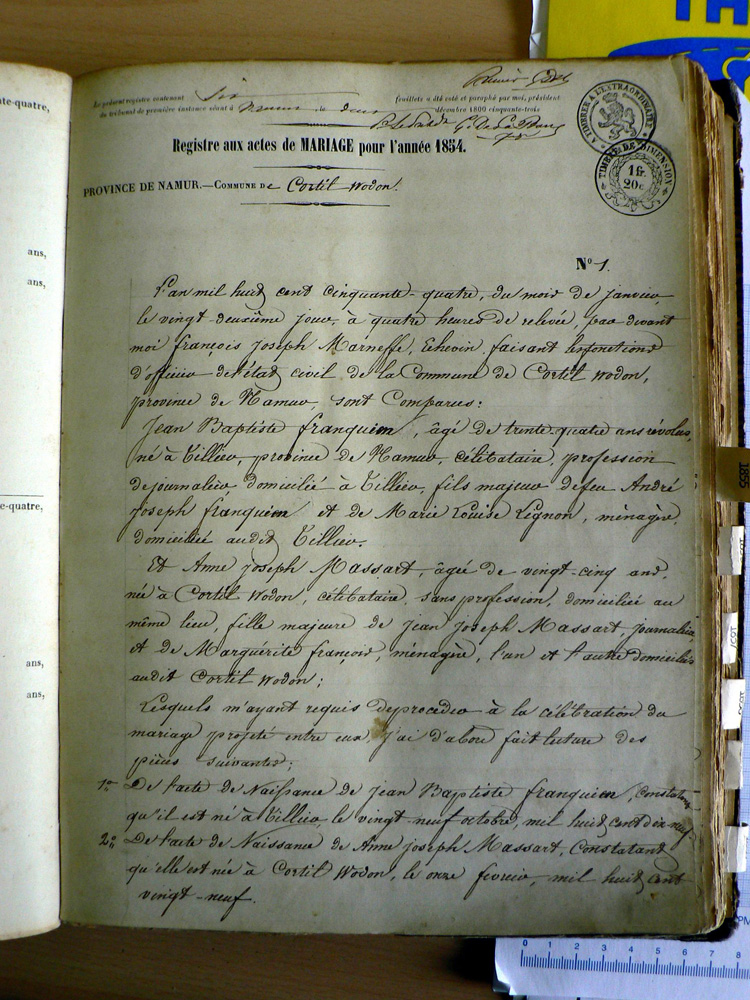 TH
te-quatre,
ans,
ans,
e-quatre,
ans,
ans,
Le présent registre contenant six feuillets a été coté et paraphé par moi, président
du tribunal de première instance séant à Namur le deux décembre 1800 cinquante-trois
A TIMBRER A L'EXTRAORDINAIRE
TIMBRE DE DIMENSION
1 fr.
20 c.
Registre aux actes de MARIAGE pour l'année 1854.
PROVINCE DE NAMUR.—COMMUNE De Cortil Wodon.
N° 1.
L'an mil huit cent cinquante-quatre, du mois de janvier
le vingt-deuxième jour, à quatre heures de relevée, par devant
moi françois joseph Marneffe, Echevin faisant les fonctions
d'officier de l'état civil de la Commune de Cortil Wodon,
province de Namur, sont Comparus:
Jean Baptiste franquien, âgé de trente-quatre ans révolus,
né à Tillier, province de Namur, célibataire, profession
de journalier, domicilié à Tillier, fils majeur de feu André
joseph franquien et de Marie Louise Lignon, ménagère,
domiciliée audit Tillier.
Et Anne joseph Massart, âgée de vingt-cinq ans,
née à Cortil Wodon, célibataire, sans profession, domiciliée au
même lieu, fille majeure de jean joseph Massart, journalier
et de Marguérite françois, ménagère, l'un et l'autre domiciliés
audit Cortil Wodon;
Lesquels m'ayant requis de procéder à la célébration du
mariage projeté entre eux, j'ai d'abord fait lecture des
pièces suivantes;
1° De l'acte de Naissance de jean Baptiste franquien, constatant
qu'il est né à Tillier, le vingt-neuf octobre, mil huit cent dix neuf.
2° De l'acte de Naissance de Anne joseph Massart, Constatant
qu'elle est née à Cortil Wodon, le onze fevrier, mil huit cent
vingt-neuf.
1855
0 1 2 3 4 5 6 7 8